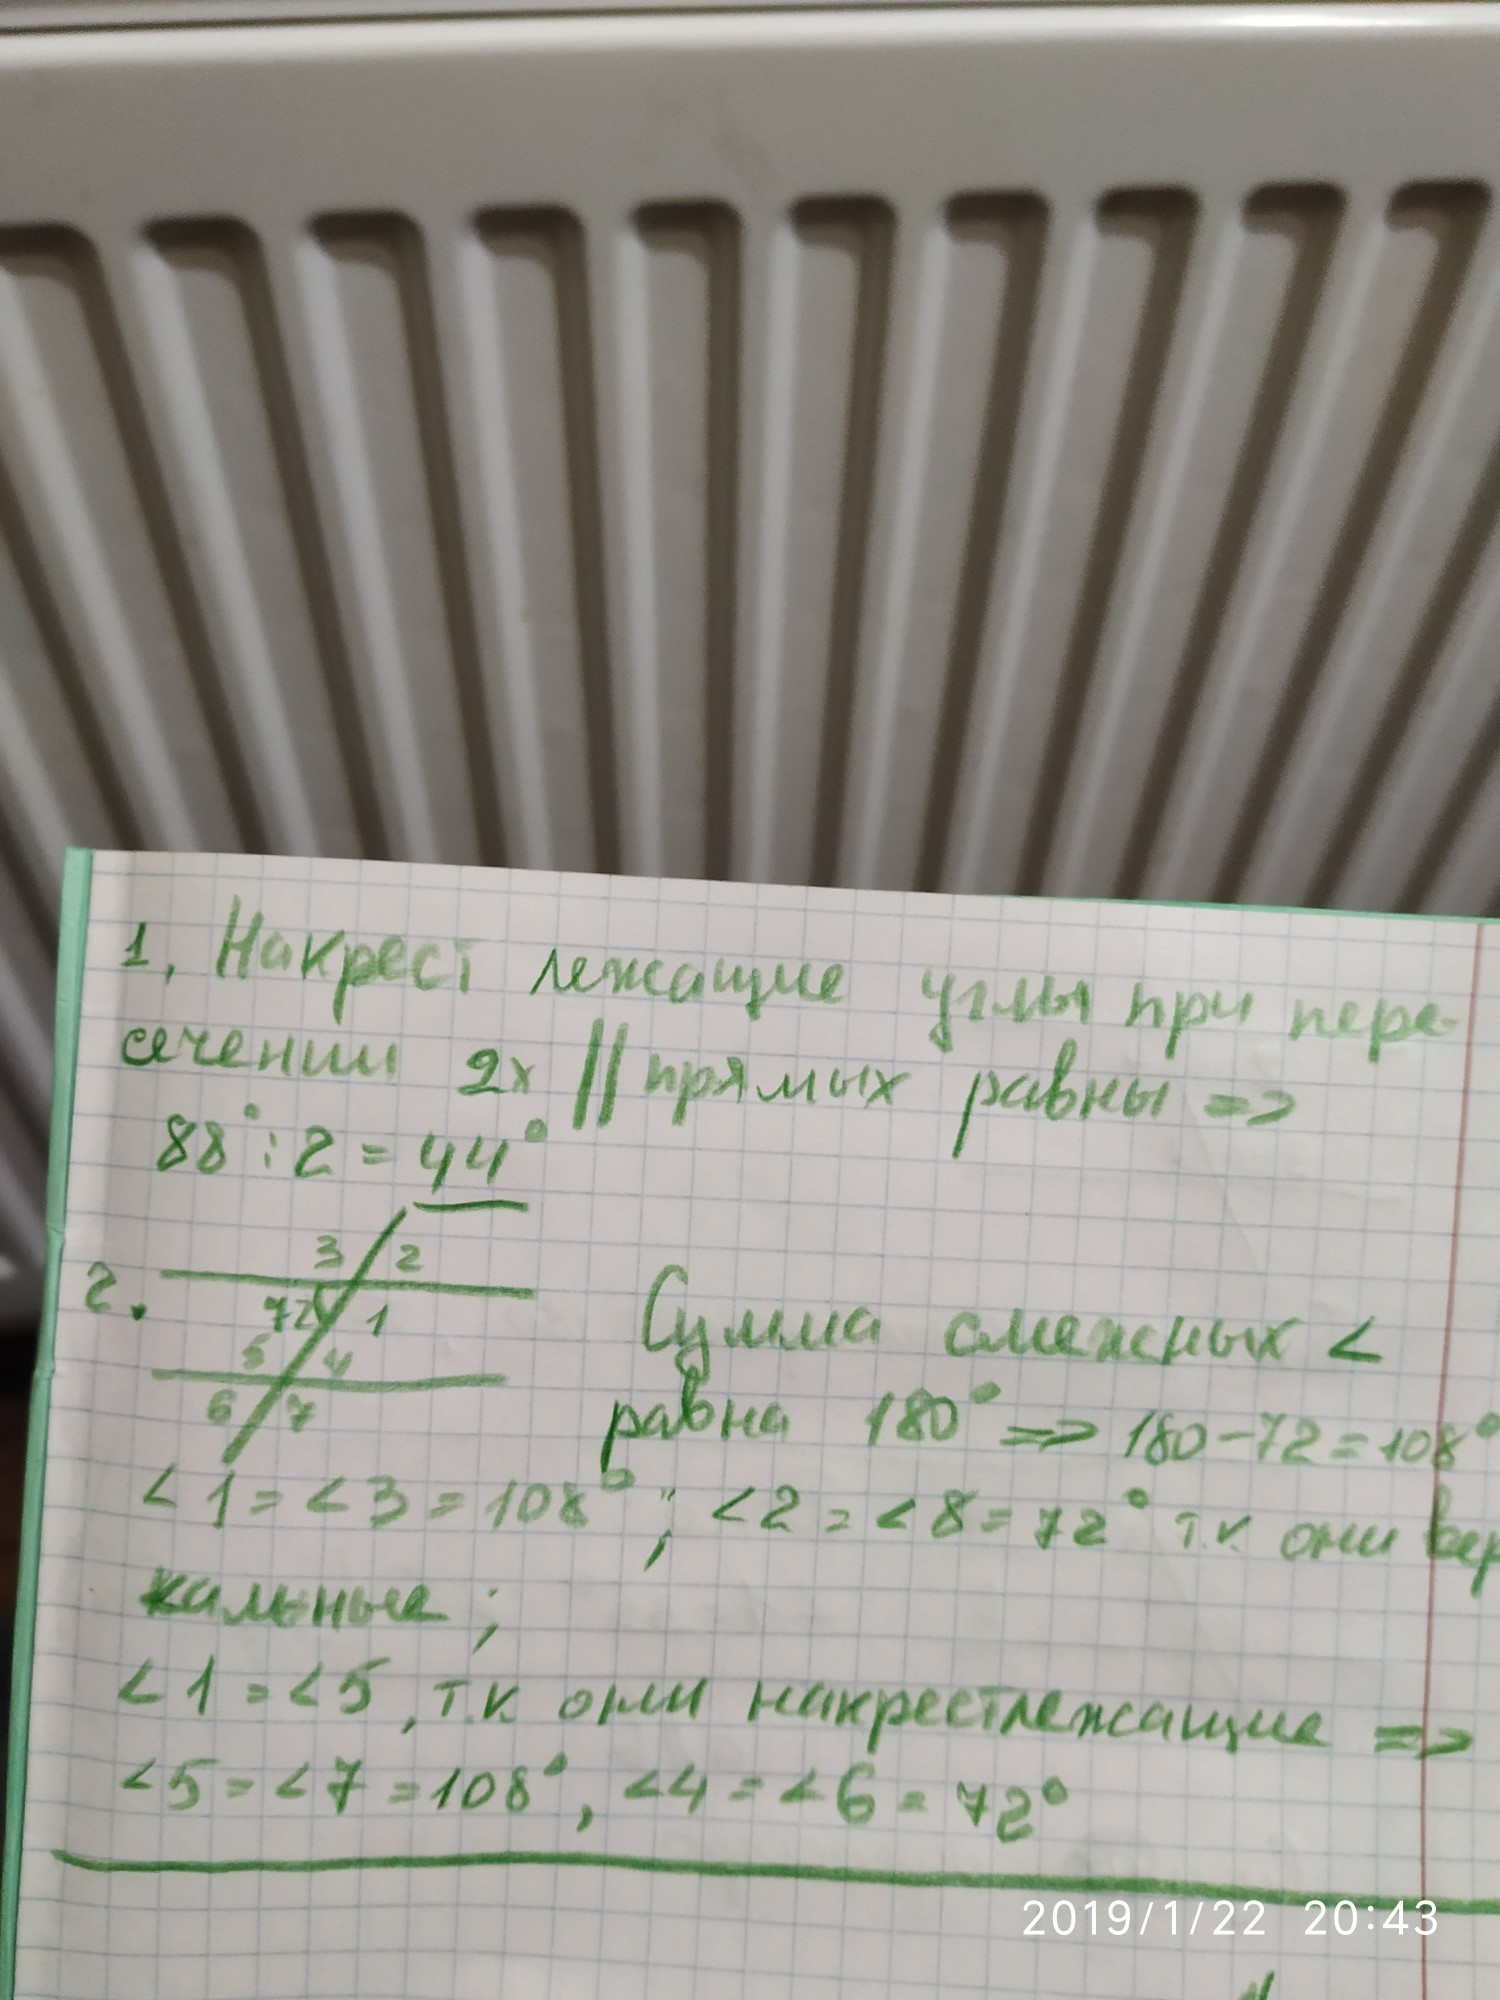 1, Накрест лежащие углы при пере-
сечении 2х || прямых равны =>
88° : 2 = 44°
2.
3 2
72 1
5 4
6 7
Сумма смежных <
равна 180° => 180-72=108°
<1=<3=108° ; <2=<8=72° т.к они вер
кальные ;
<1=<5, т.к они накрестлежащие =>
<5=<7=108°, <4=<6=72°
2019/1/22 20:43